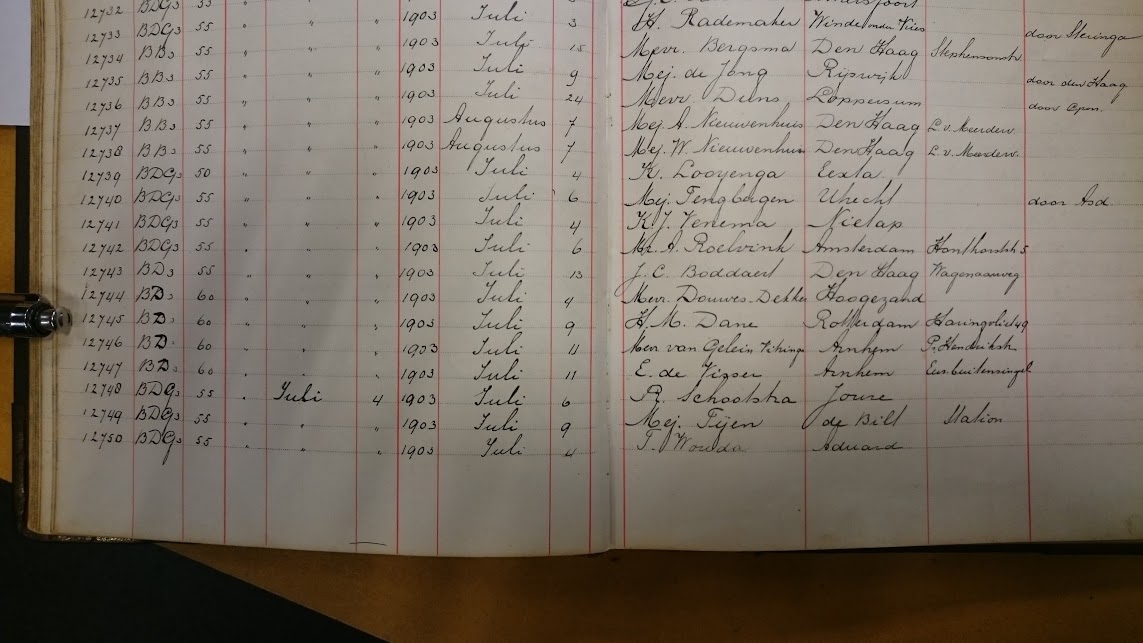 12732 BDGs 55 " " 1903 Juli 3
12733 BDGs 55 " " 1903 Juli 15 H. Rademaker Winde door Steringa
12734 BBs 55 " " 1903 Juli 9 Mevr. Bergsma Den Haag Stephensonstr.
12735 BBs 55 " " 1903 Juli 24 Mej. de Jong Rijswijk door den Haag
12736 BBs 55 " " 1903 Augustus 7 Mevr. Duns Loppersum door Opm.
12737 BBs 55 " " 1903 Augustus 7 Mej. A. Nieuwenhuis Den Haag L. v. Meerderv.
12738 BBs 55 " " 1903 Juli 4 Mej. W. Nieuwenhuis Den Haag L. v. Meerderv.
12739 BDGs 50 " " 1903 Juli 6 K. Looyenga Eexta
12740 BDGs 55 " " 1903 Juli 4 Mej. Tengbergen Utrecht door Asd.
12741 BDGs 55 " " 1903 Juli 6 K. J. Venema Nietap
12742 BDGs 55 " " 1903 Juli 13 Mr. A. Roelvink Amsterdam Honthorststr. 5
12743 BDs 55 " " 1903 Juli 4 J. C. Boddaert Den Haag Wagenaarweg
12744 BDs 60 " " 1903 Juli 9 Mevr. Douwes-Dekker Hoogezand
12745 BDs 60 " " 1903 Juli 11 H. M. Dane Rotterdam Haringvliet 49
12746 BD. 60 " " 1903 Juli 11 Mevr. van Gelein Vitringa Arnhem Pr. Hendrikstr.
12747 BDs 60 E. de Visser Arnhem Eus. buitensingel
12748 BDGs 55 " Juli 4 1903 Juli 6 R. Schootstra Joure
12749 BDGs 55 " " 1903 Juli 9 Mej. Tijen de Bilt Station
12750 BDGs 55 " " 1903 Juli 4 T. Wouda Aduard